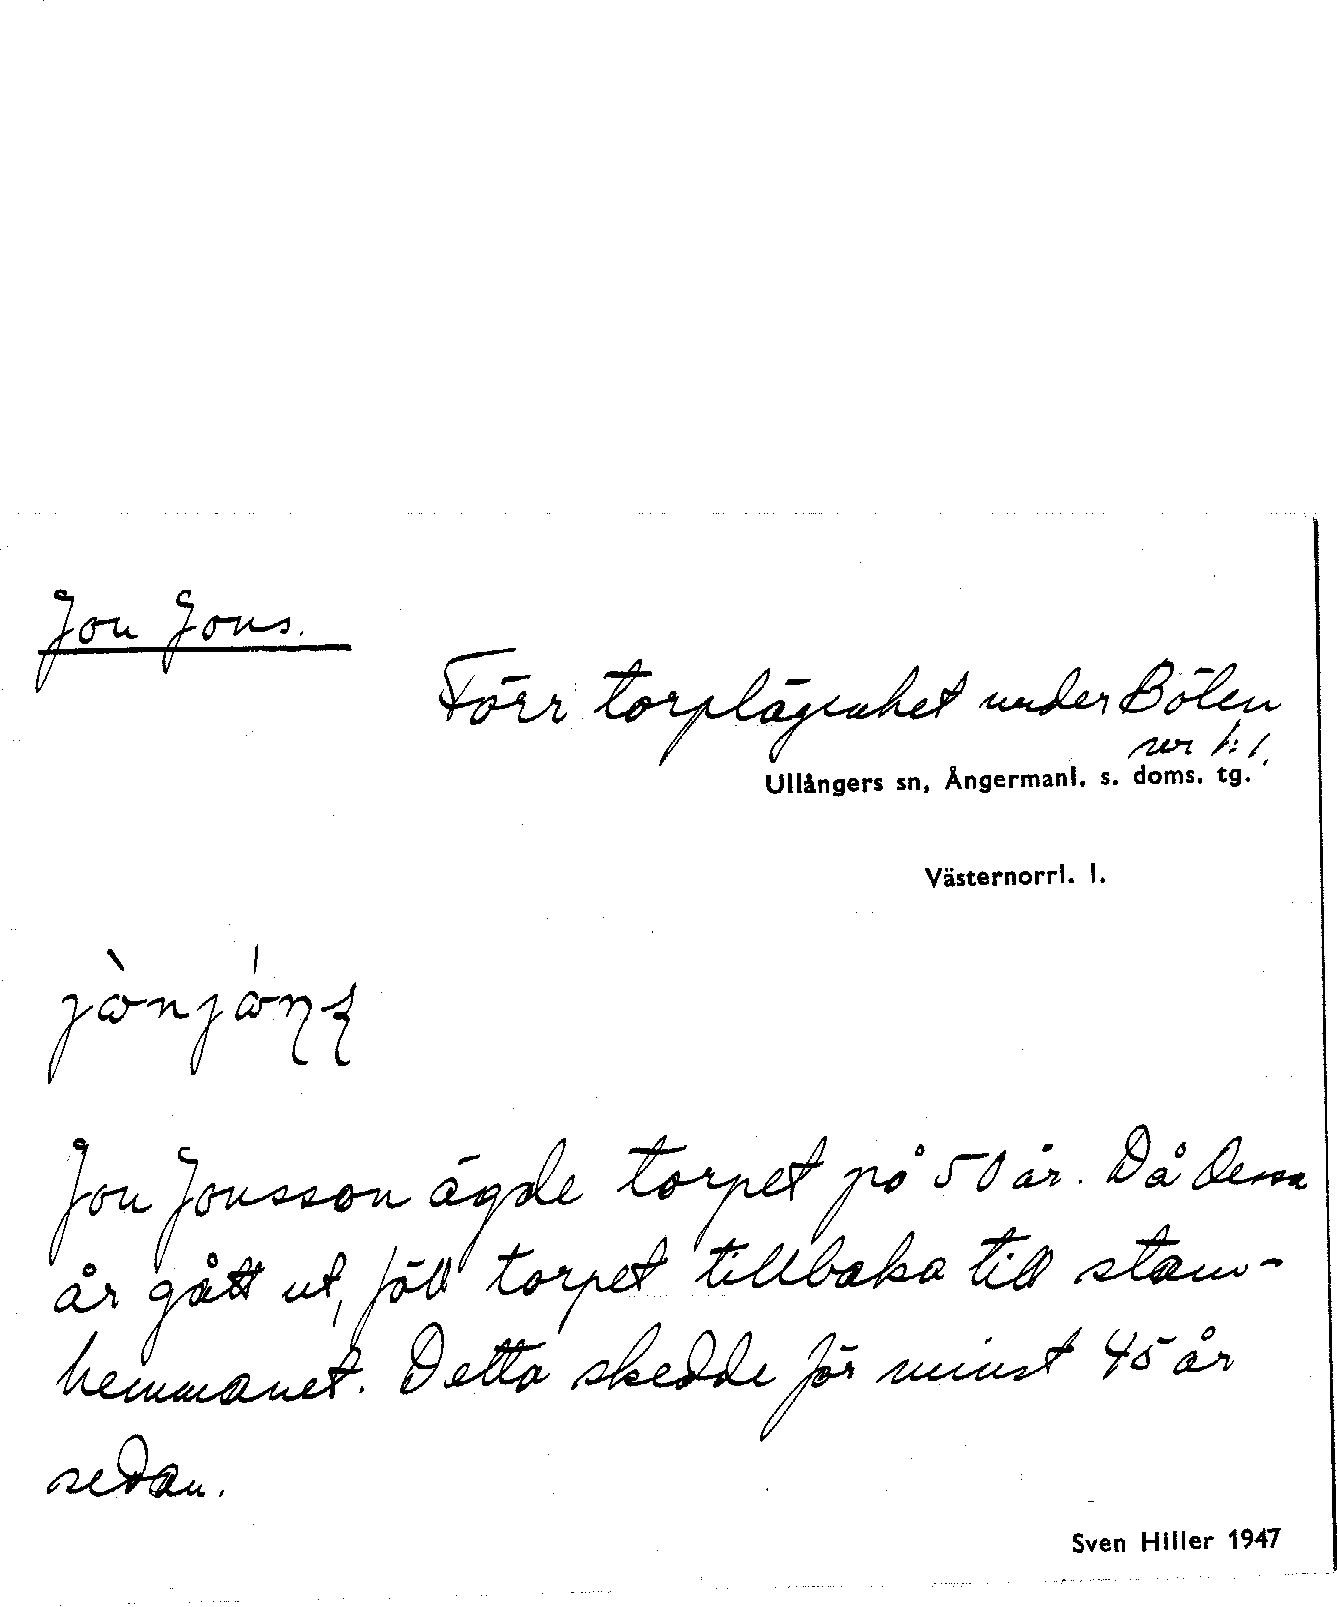 Jon Jons.
Förr torplägenhet under Bölen
nr 1:1.
Ullångers sn, Ångermanl. s. doms. tg.
Västernorrl. l.
Jon Jonsson ägde torpet på 50 år. Då dessa
år gått ut, föll torpet tillbaka till stam-
hemmanet. Detta skedde för minst 45 år
sedan.
Sven Hiller 1947